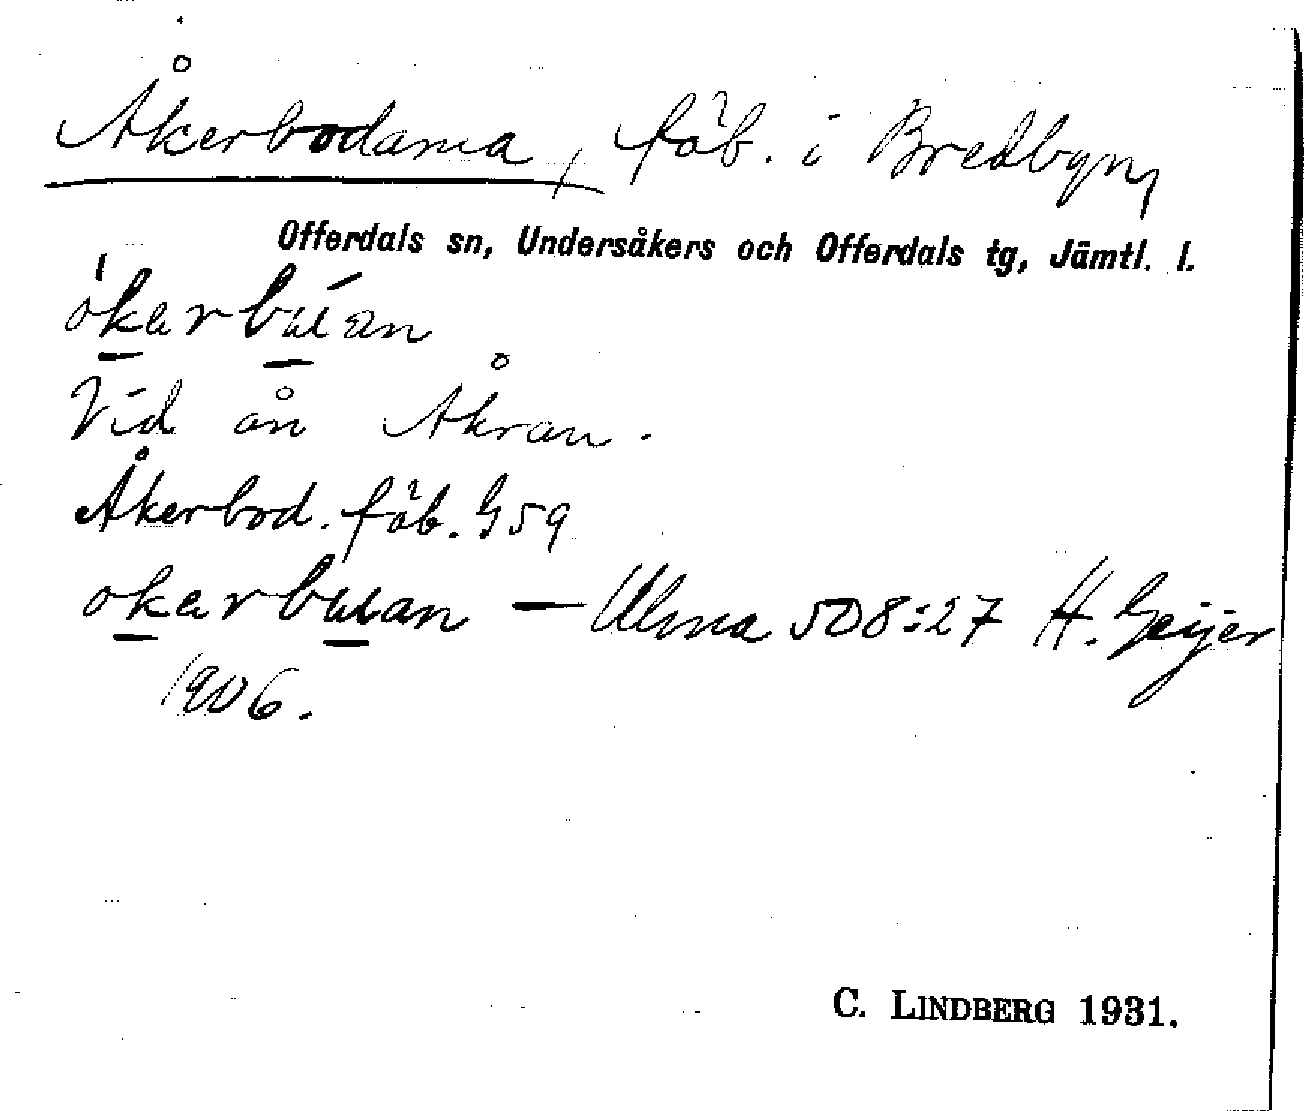 Åkerbodarna, fäb. i Bredbyn,
Offerdals sn, Undersåkers och Offerdals tg, Jämtl. l.
åkarbuan
Vid ån Åkran.
Åkerbod. fäb. G59
åkarbuan — Ulma 508:27 H. Geijer
1906.
C. LINDBERG 1931.